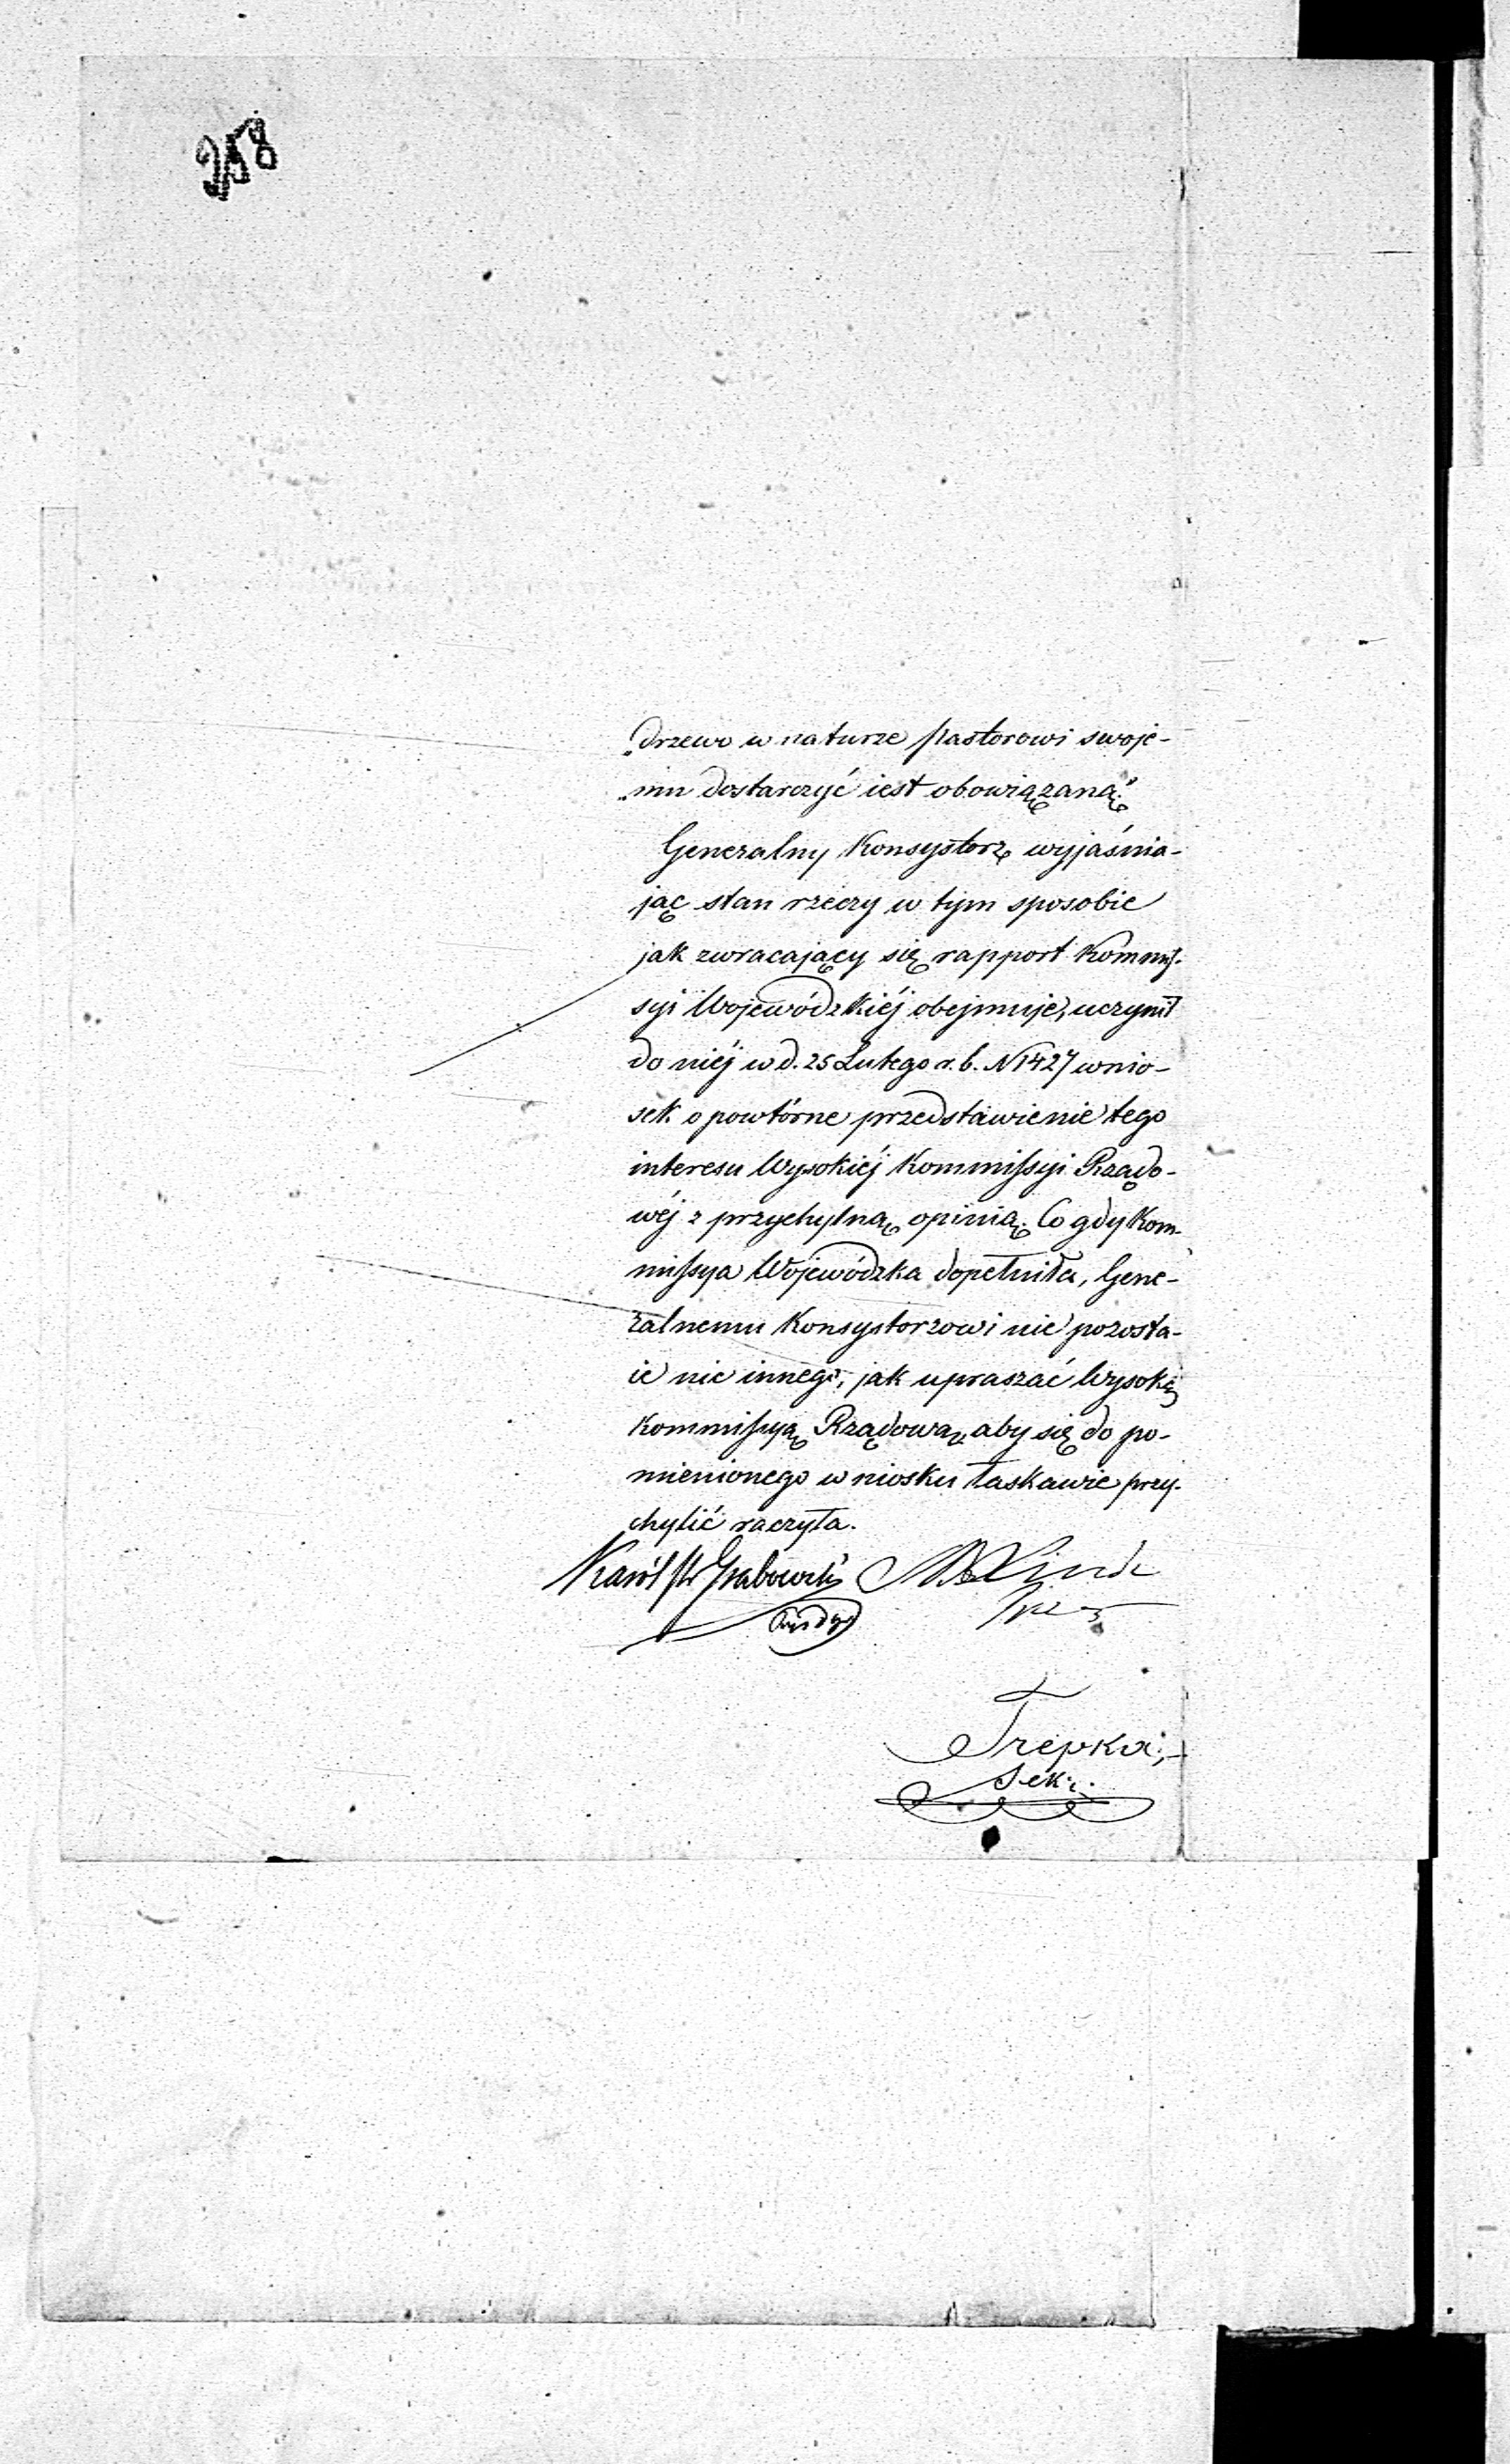 258
„drzewo w naturze pastorowi swoje-
„mu dostarczyć iest obowiązaną."
Generalny Konsystorz wyjaśnia-
jąc stan rzeczy w tym sposobie
jak zwracający się rapport Kommis-
syi Wojewódzkiéj obejmuje, uczynił
do niéj w d. 25 Lutego r. b. N 1427 wnio-
sek o powtórne przedstawienie tego
interesu Wysokiéj Kommissyi Rządo-
wéj z przychylną opinią. Co gdy Kom-
missya Wojewódzka dopełniła, Gene-
ralnemu Konsystorzowi nie pozosta-
ie nic innego, jak upraszać Wysoką
Kommissyą Rządową, aby się do po-
mienionego wniosku łaskawie przy-
chylić raczyła.
Karól Grabowski Linde
Prez
Trepka,
Sek: